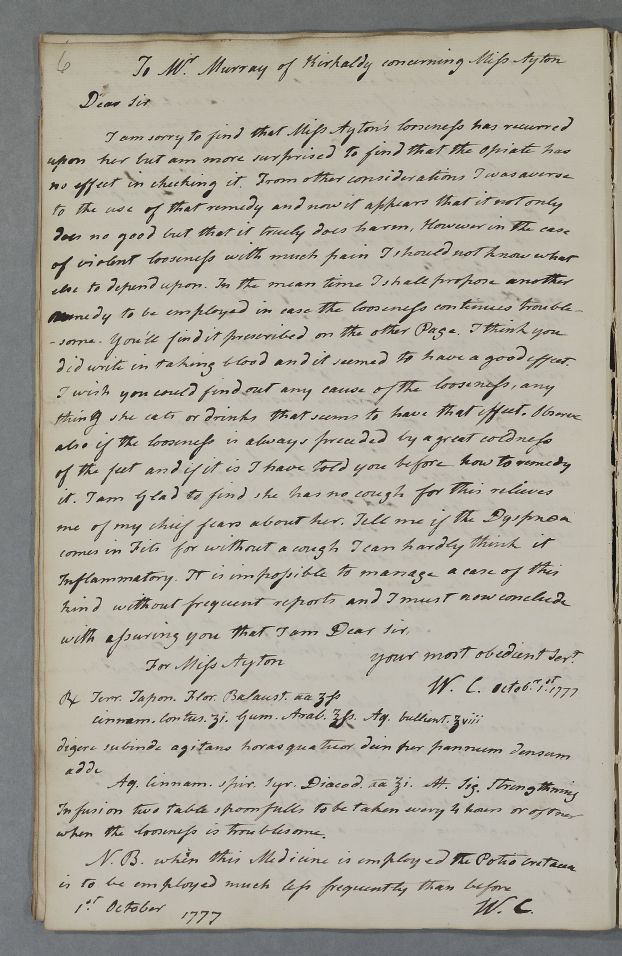 6
To Mr. Murray of Kirkaldy concerning Miss Ayton
Dear Sir
I am sorry to find that Miss Ayton's looseness has recurred
upon her but am more surprised to find that the Opiate has
no effect in checking it. From other considerations I was averse
to the use of that remedy and now it appears that it not only
does no good but that it truely does harm, However in the case
of violent looseness with much pain I should not know what
else to depend upon. In the mean time I shall propose another
remedy to be employed in case the looseness continues trouble-
-some. You'll find it prescribed on the other Page. I think you
did write in taking blood and it seemed to have a good effect.
I wish you could find out any cause of the looseness, any
thing she eats or drinks that seems to have that effect. Observe
also if the looseness is always preceded by a great coldness
of the feet and if it is I have told you before how to remedy
it. I am Glad to find she has no cough for this relieves
me of my chief fears about her. Tell me if the Dyspnœa
comes in Fits for without a cough I can hardly think it
Inflammatory. It is impossible to manage a case of this
kind without frequent reports and I must now conclude
with assuring you that I am Dear Sir,
your most obedient Sert.
For Miss Ayton
W. C. Octobr. 1st. 1777
℞ Terr. Japon. Flor. Balaust. aa ʒſs
Cinnam. Contus. ʒi. Gum. Arab. ʒſs. Aq. bullient. ʒviii
digere subinde agitans horas quatuor dein per pannum densum
adde
Aq. Cinnam. Spir. Syr. Diacod. aa ʒi. M. Sig. Strengthning
Infusion two table spoonfulls to be taken every 4 hours or oftner
when the looseness is troublesome.
N.B. when this Medicine is employed the Potio Cretacea
is to be employed much less frequently than before
1st October 1777
W. C.